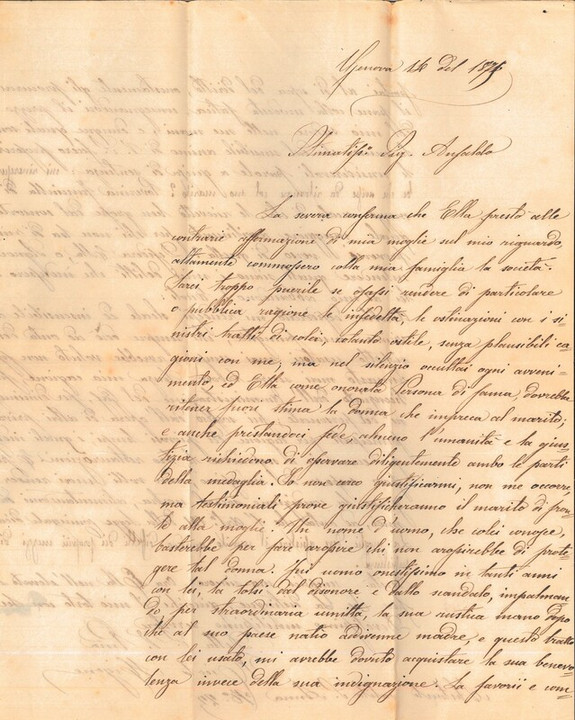 Genova 14 del 1875
Stimatiss. Sig. Ansaldo
La severa conferma che Ella prestò alle
contrarie affermazioni di mia moglie sul mio riguardo,
altamente commossero colla mia famiglia la società.
Sarei troppo puerile se osassi rendere di particolare
o pubblica ragione le infedeltà, le ostinazioni con i si-
nistri tratti di colei, cotanto ostile, senza plausibili ca-
gioni con me; ma nel silenzio occultai ogni avveni-
mento, ed Ella come onorata Persona di fama, dovrebbe
ritener fuori stima la donna che impreca al marito;
e anche prestandoci fede, almeno l'umanità e la gius-
tizia richiedono di osservare diligentemente ambo le parti
della medaglia. Io non cerco giustificarmi, non me occorre,
ma testimoniali prove giustificheranno il marito di fron-
te alla moglie. Un nome d'uomo, che colei conosce,
basterebbe per fare arossire chi non arossirebbe di proteg-
gere tal donna. Fui uomo onestissimo in tanti anni
con lei, la tolsi dal disonore e dallo scandalo, impalman-
do per straordinaria umiltà, la sua rustica mano dopo
che al suo paese natio addivenne madre, e questo tratto
con lei usato, mi avrebbe dovuto acquistare la sua benevo-
lenza invece della sua indignazione. La favorii e com-